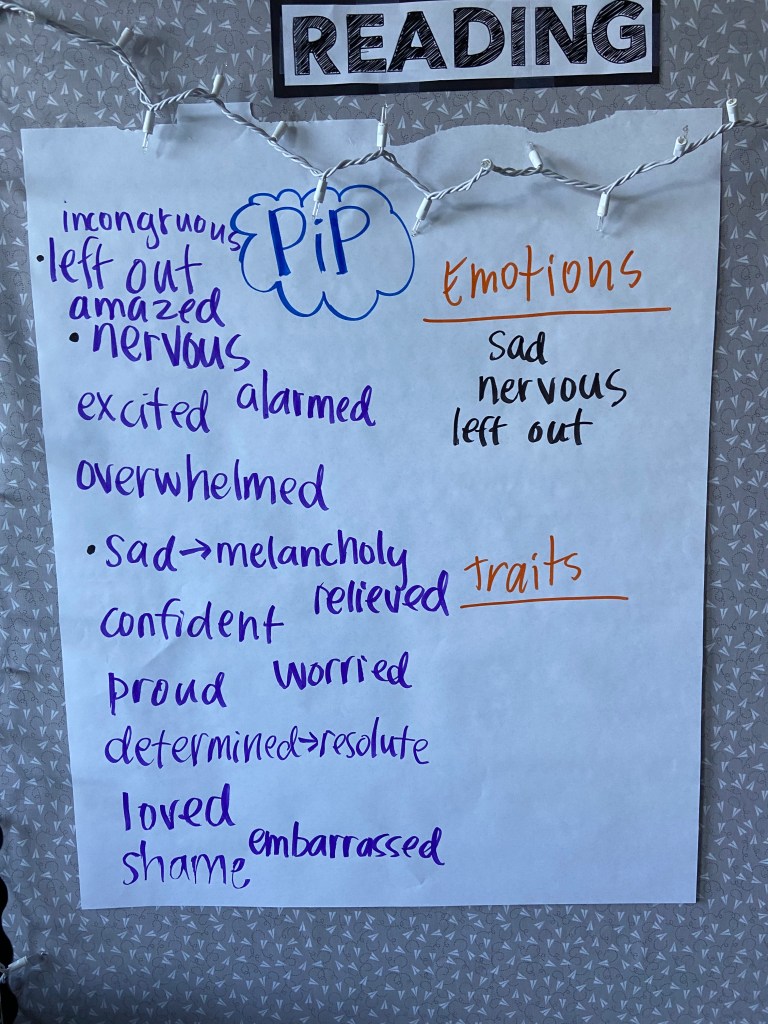 READING
PiP
incongruous
left out
amazed
nervous
excited alarmed
overwhelmed
sad→melancholy
relieved
confident
worried
proud
determined→resolute
loved
embarrassed
shame
Emotions
sad
nervous
left out
traits